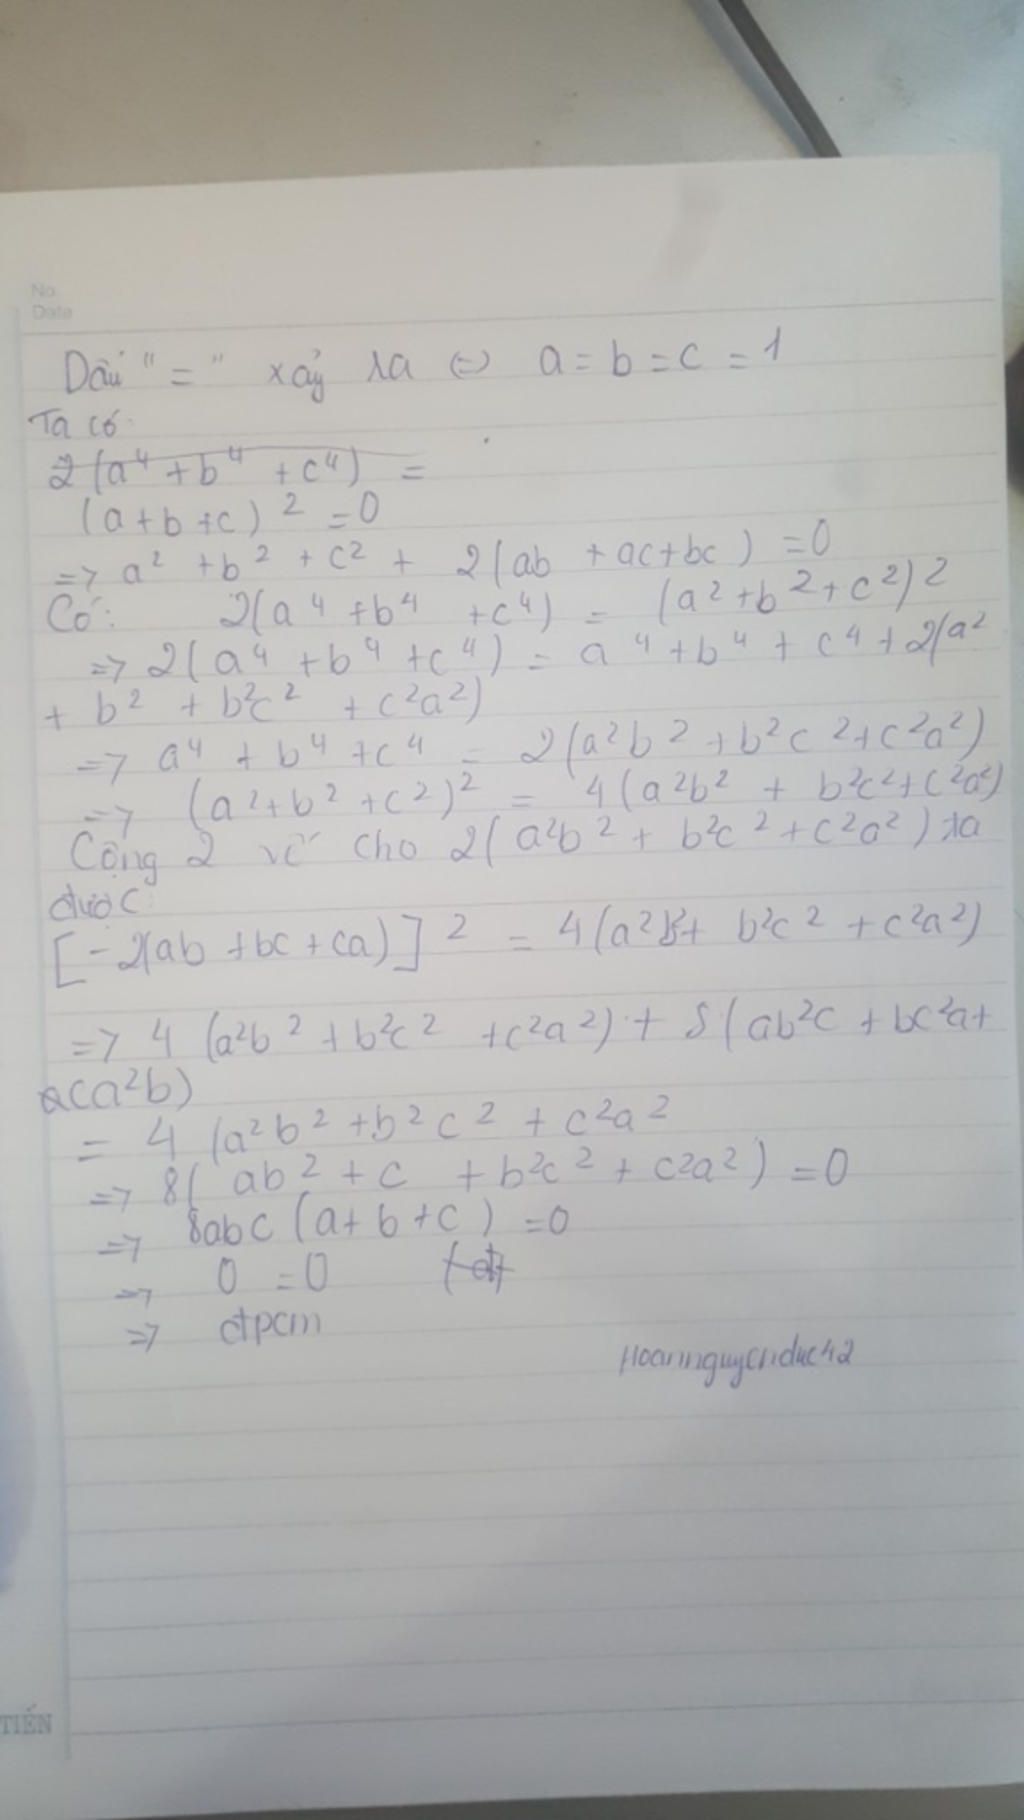 No.
Date
Dấu "=" xảy ra <=> a = b = c = 1
Ta có:
2(a⁴ + b⁴ + c⁴) =
(a + b + c)² = 0
=> a² + b² + c² + 2(ab + ac + bc) = 0
Có: 2(a⁴ + b⁴ + c⁴) = (a² + b² + c²)²
=> 2(a⁴ + b⁴ + c⁴) = a⁴ + b⁴ + c⁴ + 2(a²
+ b² + b²c² + c²a²)
=> a⁴ + b⁴ + c⁴ = 2(a²b² + b²c² + c²a²)
=> (a² + b² + c²)² = 4(a²b² + b²c² + c²a²)
Cộng 2 vế cho 2(a²b² + b²c² + c²a²) ta
được:
[-2(ab + bc + ca)]² = 4(a²b² + b²c² + c²a²)
=> 4(a²b² + b²c² + c²a²) + 8(ab²c + bc²a +
ca²b)
= 4(a²b² + b²c² + c²a²
=> 8(ab² + c + b²c² + c²a²) = 0
=> 8abc(a + b + c) = 0
=> 0 = 0
=> đpcm
Hoannguyenduc42
TIẾN